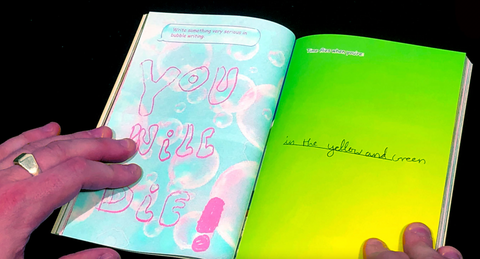 Write something very serious in
bubble writing:
YOU
WiLL
DiE!
Time flies when you're:
in the yellow and green